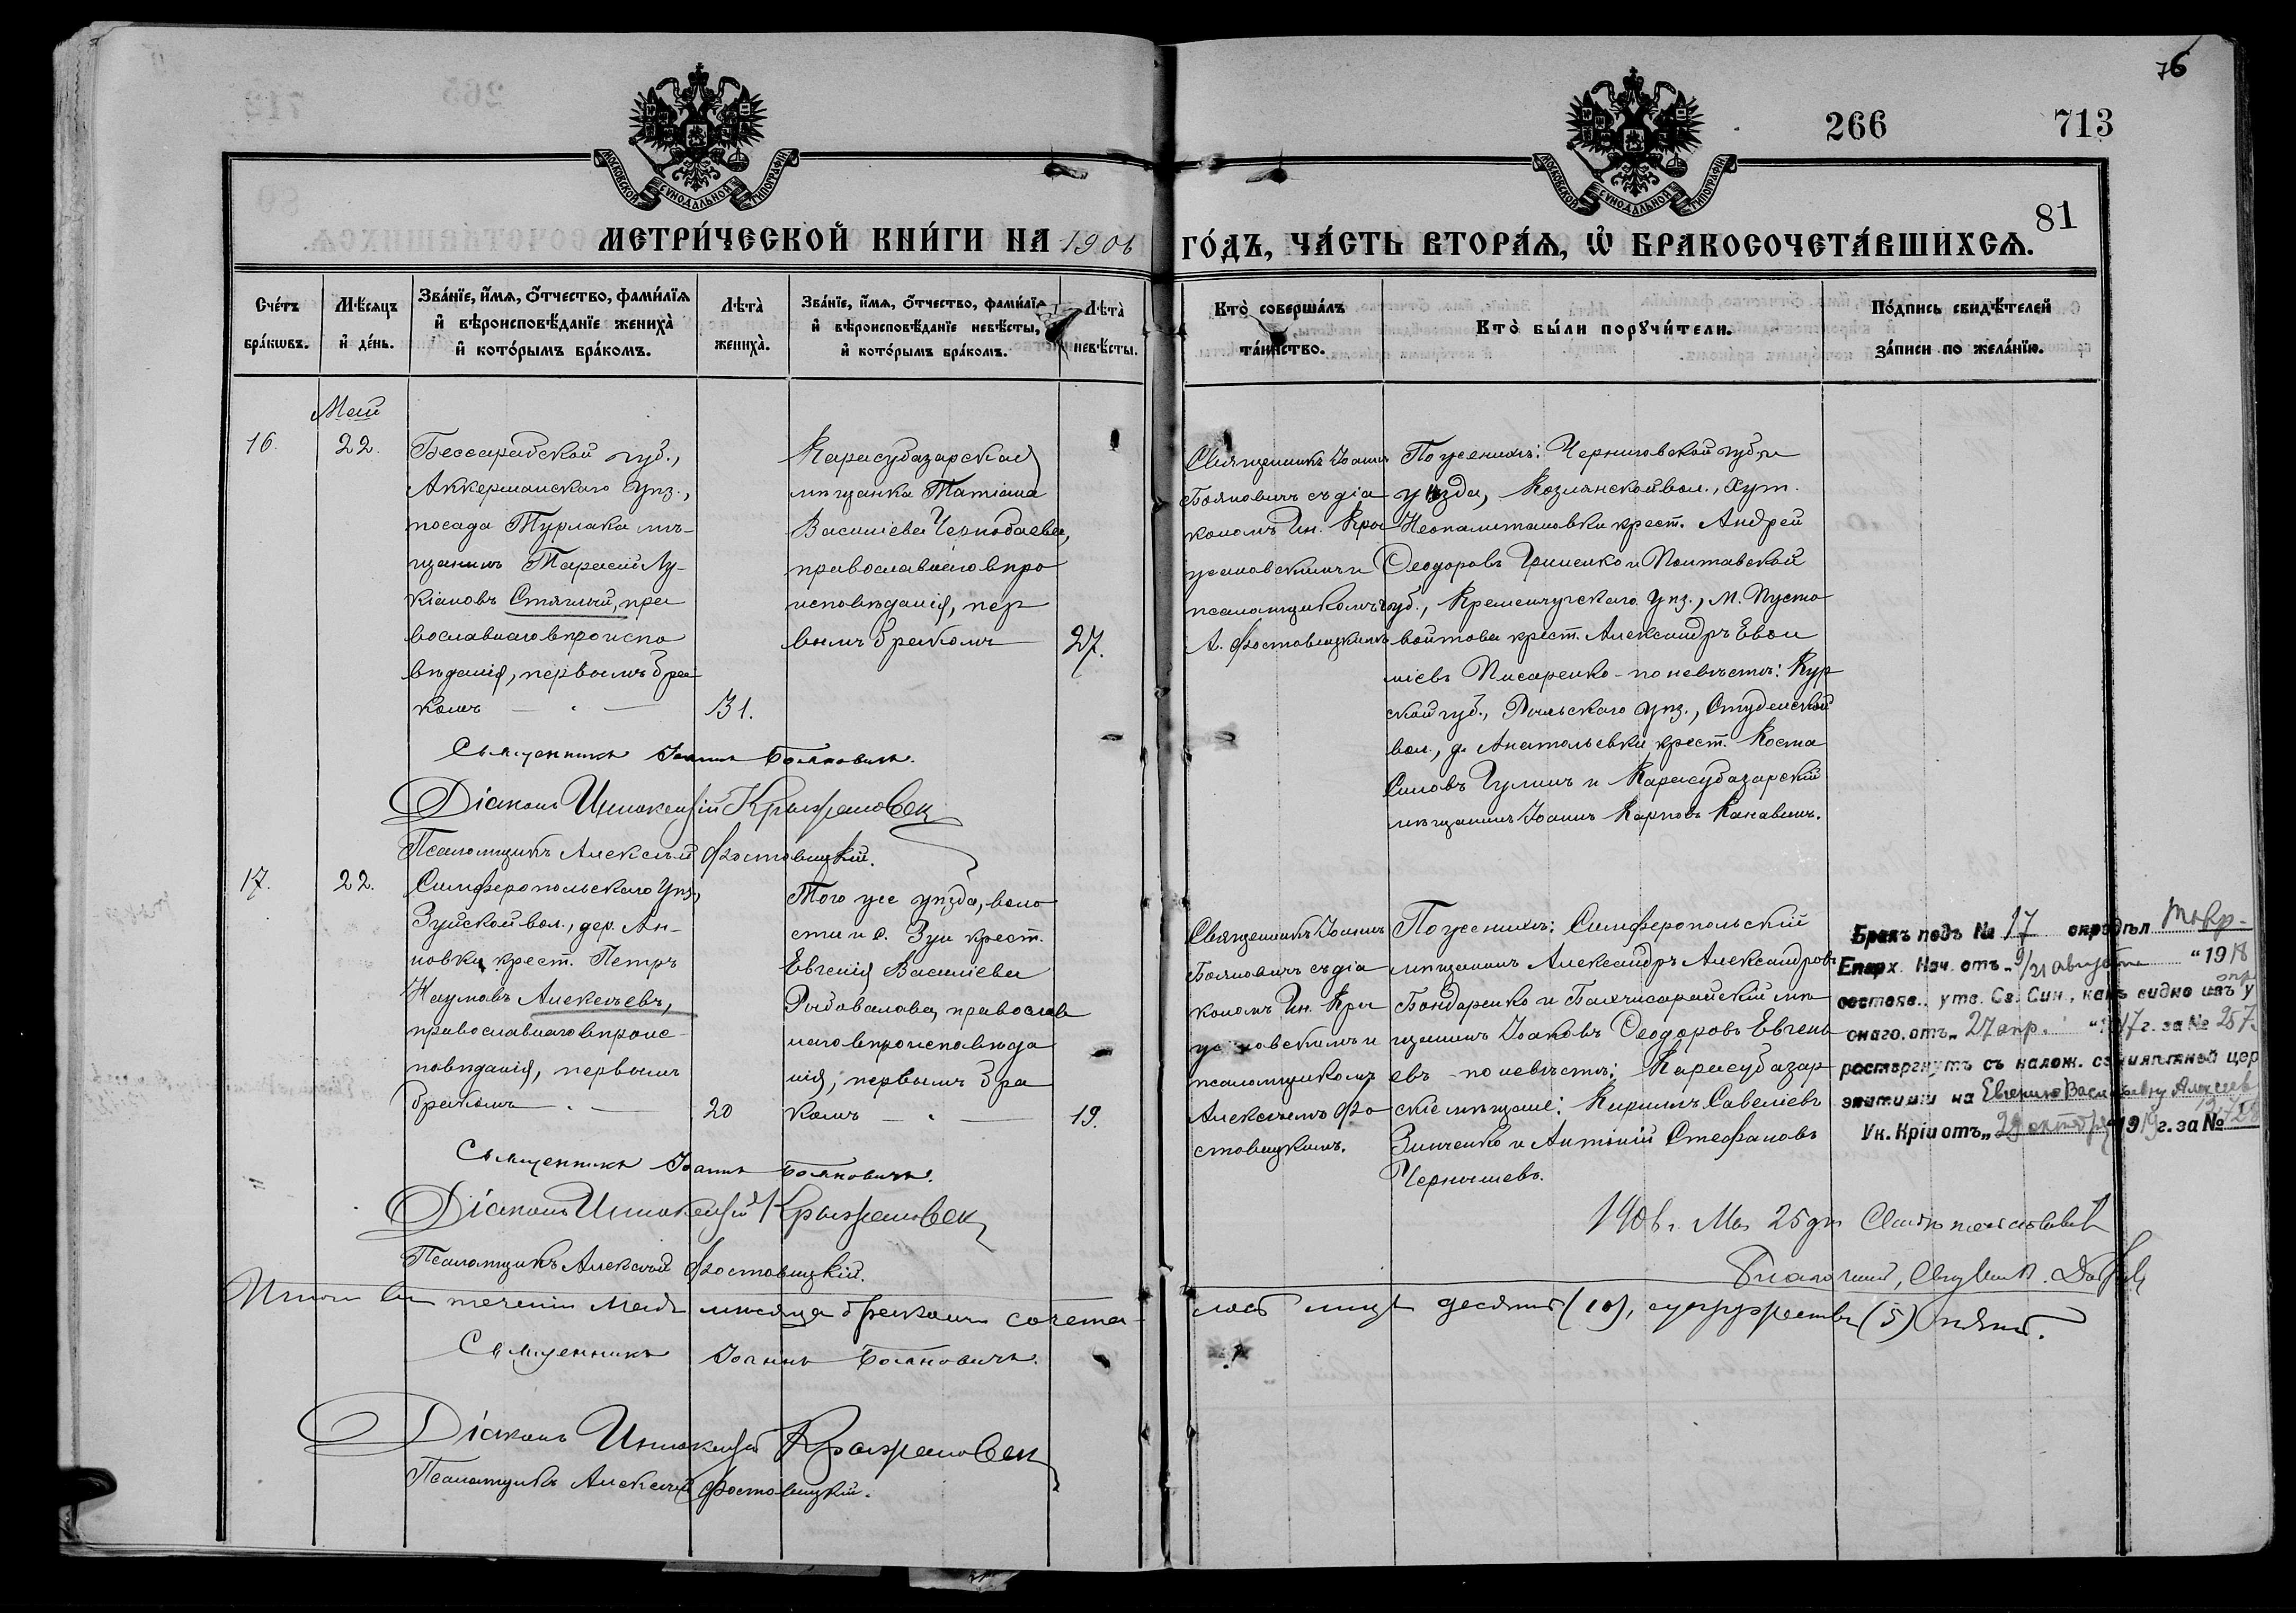 76
266
713
81
МОСКОВСКОЙ СѴНОДАЛЬНОЙ ТИПОГРАФІИ
МОСКОВСКОЙ СѴНОДАЛЬНОЙ ТИПОГРАФІИ
МЕТРИ́ЧЕСКОЙ КНИ́ГИ НА 1906
ГО́ДЪ, ЧА́СТЬ ВТОРА́Я, Ѽ БРАКОСОЧЕТА́ВШИХСЯ.
Сче́тъ бра́кѡвъ.
Мѣ́сяцъ и҆ де́нь.
Зва́нїе, и҆́мя, ѻ҆́тчество, фами́лїя
и҆ вѣроисповѣ́данїе жениха̀
и҆ кото́рымъ бра́комъ.
Лѣта̀ жениха̀.
Зва́нїе, и҆́мя, ѻ҆́тчество, фами́лїя
и҆ вѣроисповѣ́данїе невѣ́сты,
и҆ кото́рымъ бра́комъ.
Лѣта̀ невѣ́сты.
Кто̀ соверша́лъ та́инство.
Кто̀ бы́ли порꙋчи́тели.
По́дпись свидѣ́телей
за́писи по жела́нїю.
Май
16.
22.
Бессарабской губ.,
Аккерманскаго уѣз.,
посада Турлака мѣ-
щанинъ Тарасій Лу-
кіановъ Стяглый, пра
вославнаго вѣроиспо
вѣданія, первымъ бра
комъ
31.
Карасубазарская
мѣщанка Татіана
Василіева Чернобаева,
православнаго вѣро
исповѣданія, пер
вымъ бракомъ
27.
Священникъ Іоаннъ
Бояновичъ съ діа
кономъ Ин. Кры
жановскимъ и
псаломщикомъ
А. Фостовицкимъ
По женихѣ: Черниговской губ. и
уѣзда, Козлянской вол., хут.
крест. Андрей
Ѳеодоровъ Гриненко и Полтавской
губ., Кременчугскаго уѣз., м. Пусто
войтова крест. Александръ Евсе
міевъ Писаренко - по невѣстѣ: Кур
ской губ., Рыльскаго уѣз., Студенской
вол., д. Анатольевки крест. Косма
Симовъ Гулинъ и Карасубазарскій
мѣщанинъ Іоаннъ Карповъ Канавинъ.
Священникъ Іоаннъ Бояновичъ.
Діаконъ Иннокентій Крыжановск
Псаломщикъ Алексѣй Фостовицкій.
17.
22.
Симферопольскаго уѣз,
Зуйской вол., дер. Ан-
новки крест. Петръ
Наумовъ Алексѣевъ,
православнаго вѣроис-
повѣданія, первымъ
бракомъ
20
Того же уѣзда, воло
сти и с. Зуи крест.
Евгенія Василіева
Рыбовалова, православ
наго вѣроисповѣда
нія, первымъ бра
комъ
19.
Священникъ Іоаннъ
Бояновичъ съ діа
кономъ Ин. Кры
жановскимъ и
псаломщикомъ
Алексѣемъ Фо
стовицкимъ.
По женихѣ: Симферопольскій
мѣщанинъ Александръ Александровъ
Бондаренко и Бахчисарайскій мѣ
щанинъ Іаковъ Ѳеодоровъ Евгень
евъ - по невѣстѣ: Карасубазар
скіе мѣщане: Кириллъ Савеліевъ
Зинченко и Антоній Стефановъ
Чернышевъ.
Бракъ подъ № 17 опредѣл Тавр-
Епарх. Нач. отъ „9/21 августа “ 1918
состояв., утв. Св. Син., какъ видно изъ у
снаго, отъ „27 апр. “ 1917 г. за № 257.
расторгнутъ съ налож. семилѣтней цер
эпитиміи на Евгенію Васильевну Алексеев
Ук. Кріи отъ „29 октября“ 1919 г. за №
Священникъ Іоаннъ Бояновичъ.
Діаконъ Иннокентій Крыжановск
Псаломщикъ Алексѣй Фостовицкій.
1906 г. Мая 25 дня
Благочинный, Священ.
Итого въ теченіи Мая мѣсяца бракомъ сочета-
лось лицъ десять (10), супружествъ (5) пять.
Священникъ Іоаннъ Бояновичъ.
Діаконъ Иннокентій Крыжановск
Псаломщикъ Алексѣй Фостовицкій.